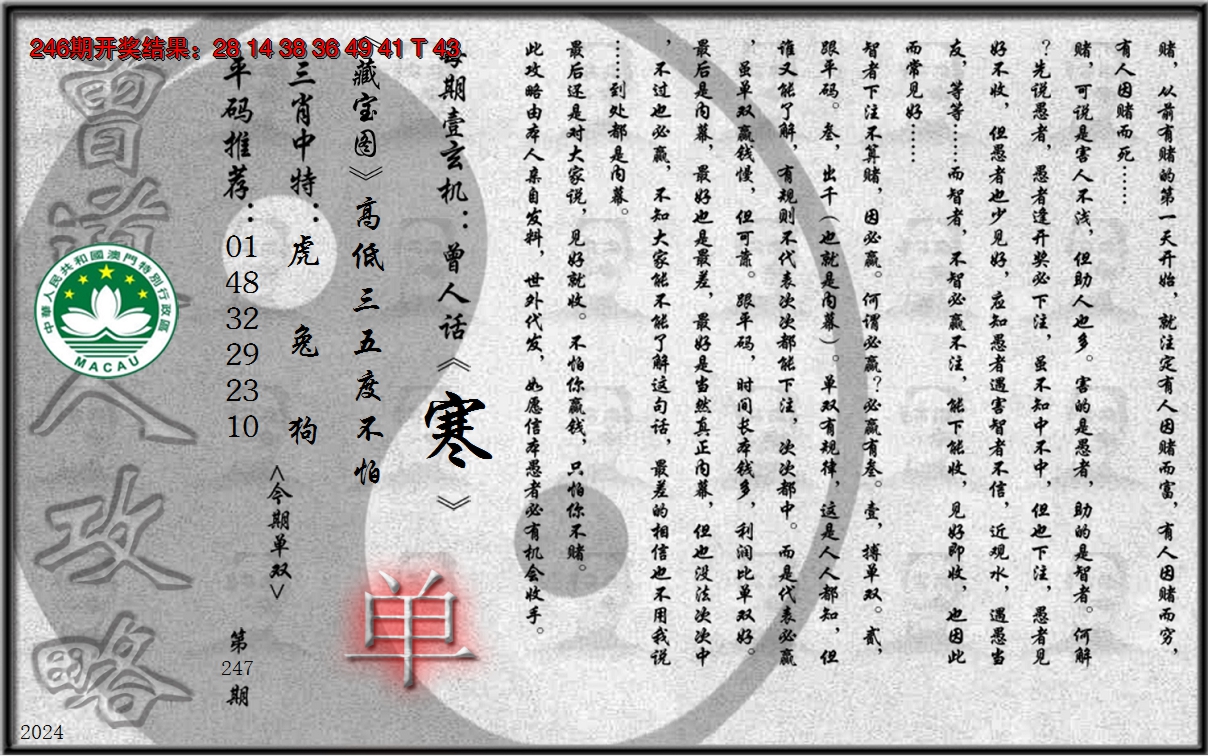 246期开奖结果：28 14 38 36 49 41 T 43
赌，从前有赌的第一天开始，就注定有人因赌而富，有人因赌而穷，
有人因赌而死……
赌，可说是害人不浅，但助人也多。害的是愚者，助的是智者。何解
？先说愚者，愚者逢开奖必下注，虽不知中不中，但也下注，愚者见
好不收，但愚者也少见好，应知愚者遇害智者不信，近观水，遇愚当
友，等等……而智者，不智必赢不注，能下能收，见好即收，也因此
而常见好……
智者下注不算赌，因必赢。何谓必赢？必赢有叁。壹，搏单双。贰，
跟平码。叁，出千（也就是内幕）。单双有规律，这是人人都知，但
谁又能了解，有规则不代表次次都能下注，次次都中。而是代表必赢
，虽单双赢钱慢，但可靠。跟平码，时间长本钱多，利润比单双好。
最后是内幕，最好也是最差，最好是当然真正内幕，但也没法次次中
，不过也必赢，不知大家能不能了解这句话，最差的相信也不用我说
……到处都是内幕。
最后还是对大家说，见好就收。不怕你赢钱，只怕你不赌。
此攻略由本人亲自发料，世外代发，如愿信本愚者必有机会收手。
每期壹玄机：曾人话《寒》
《藏宝图》高低三五度不怕
单
三肖中特：虎 兔 狗
<今期单双>
平码推荐：01 48 32 29 23 10
第247期
曾道人攻略
中華人民共和國澳門特別行政區
MACAU
2024